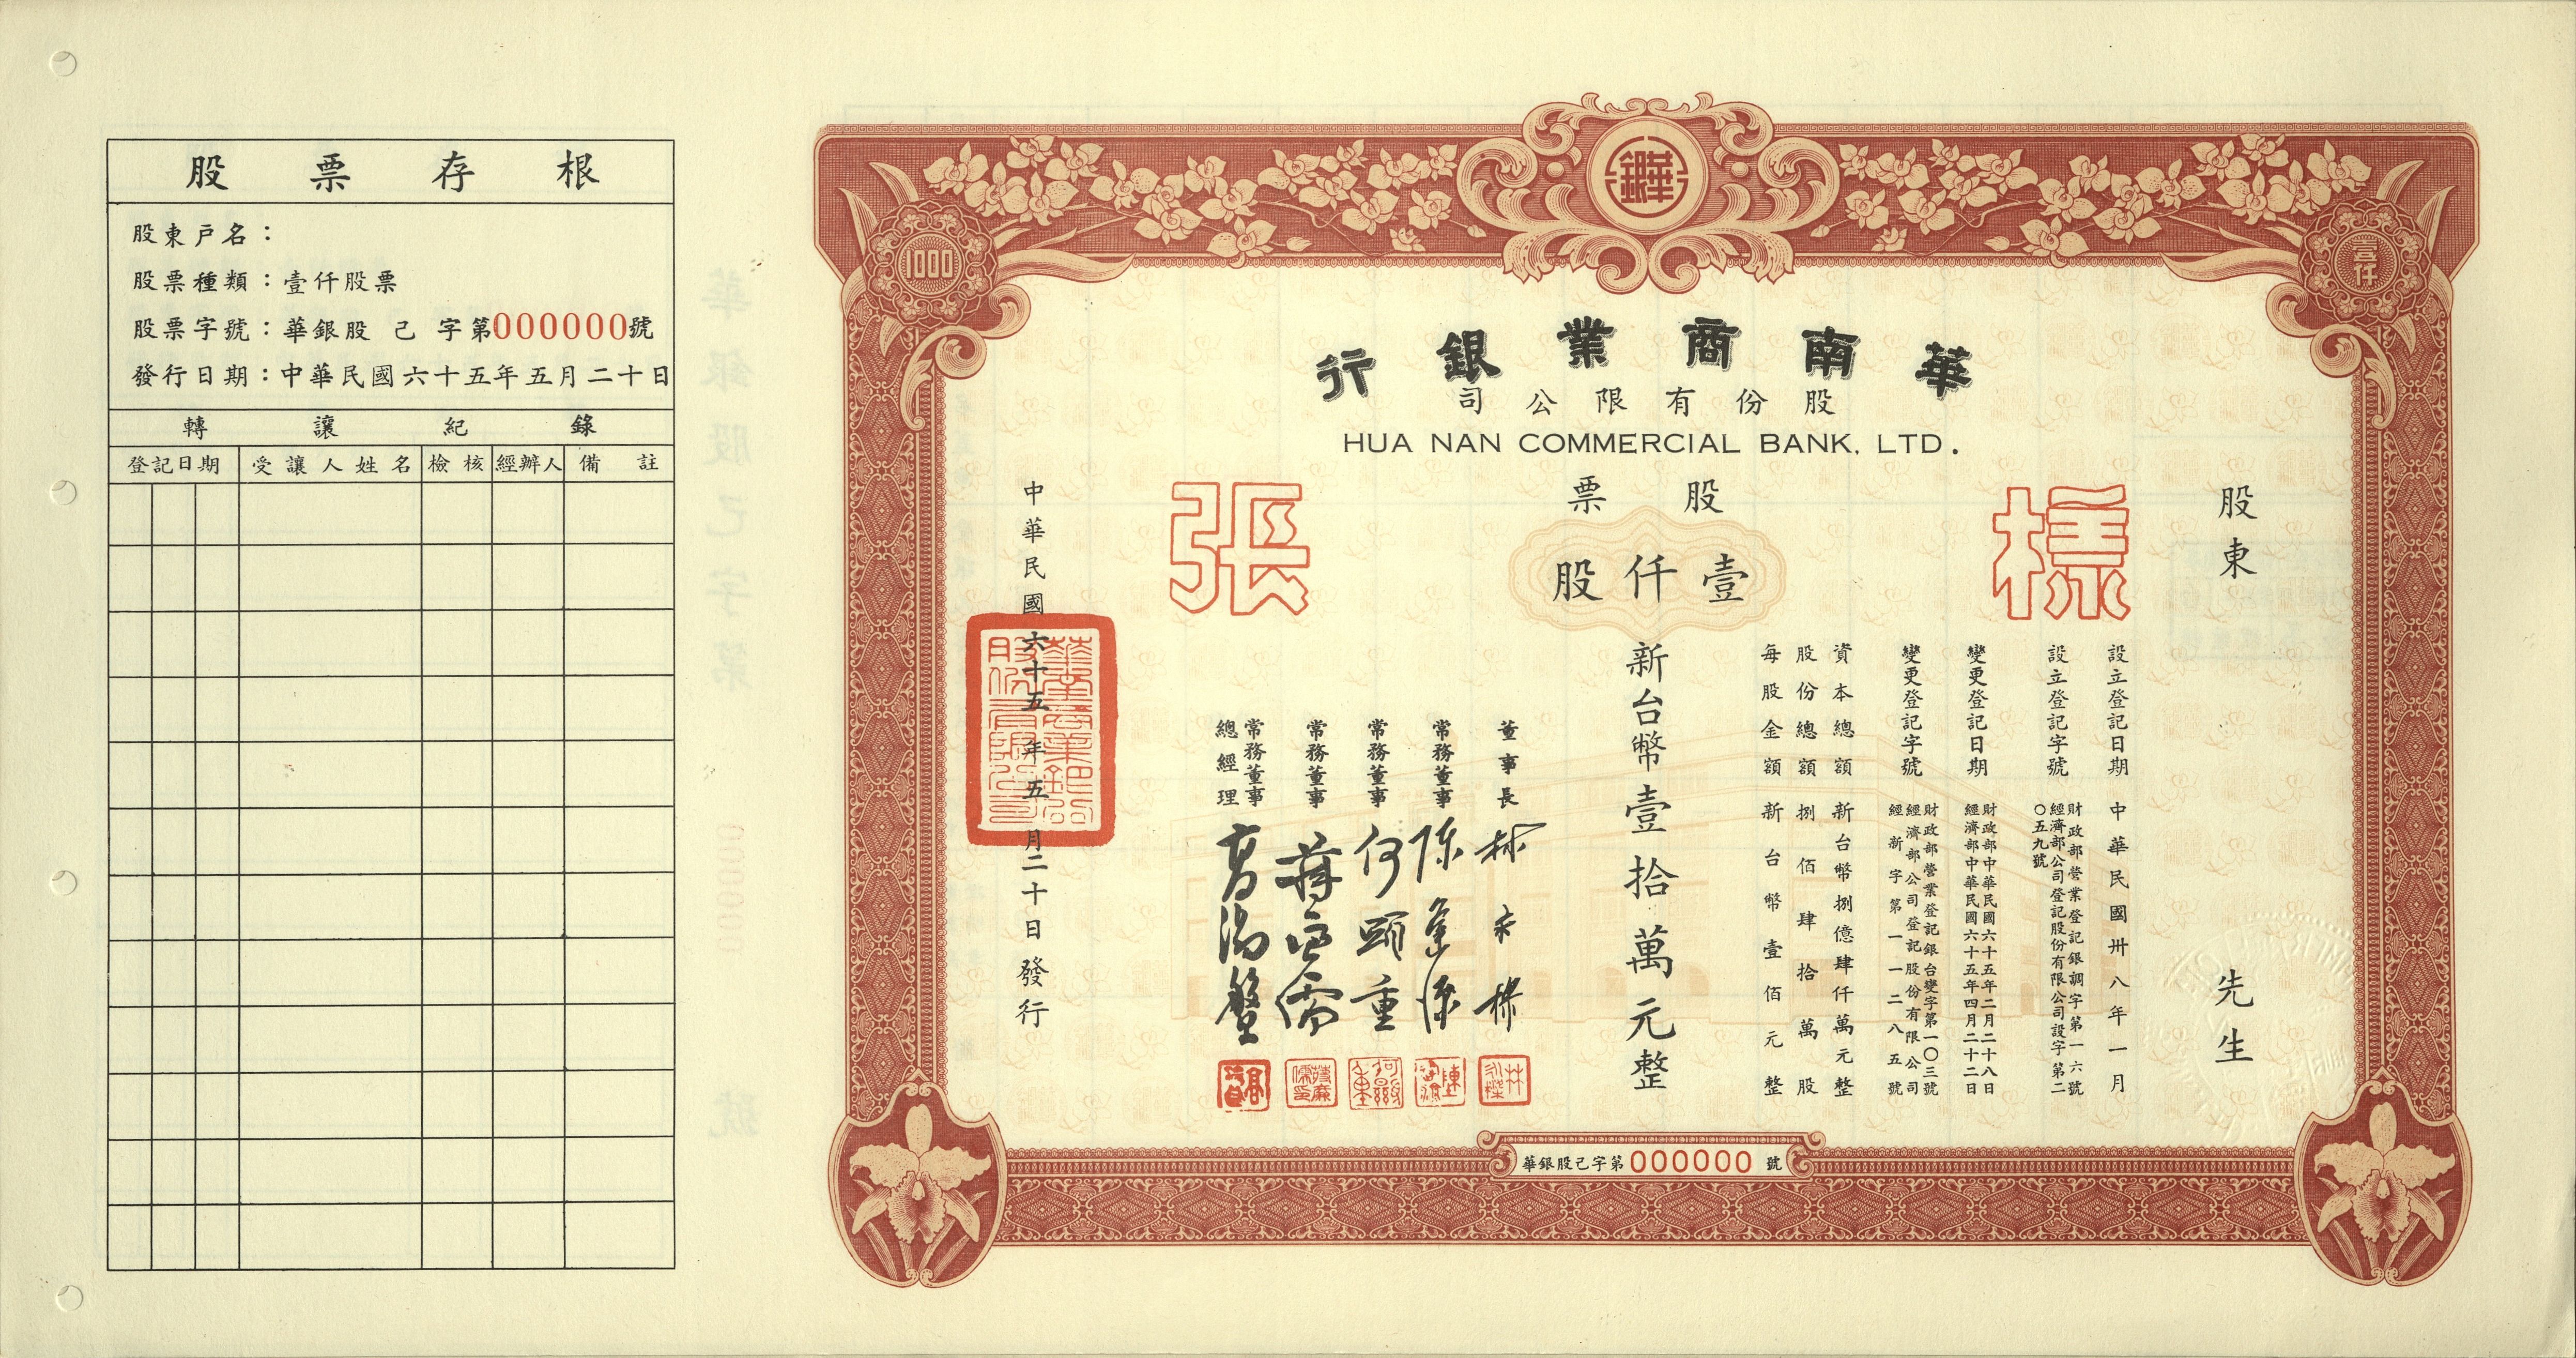 股票存根
股東戶名：
股票種類：壹仟股票
股票字號：華銀股 己 字第000000號
發行日期：中華民國六十五年五月二十日
轉讓紀錄
登記日期 受讓人姓名 檢核 經辦人 備註
華銀
1000
壹仟
華南商業銀行
股份有限公司
HUA NAN COMMERCIAL BANK, LTD.
股票
樣張
壹仟股
股東
先生
設立登記日期 中華民國卅八年一月
設立登記字號 財政部營業登記銀調字第一六號
經濟部公司登記股份有限公司設字第二〇五九號
變更登記日期 財政部中華民國六十五年二月二十八日
經濟部中華民國六十五年四月二十二日
變更登記字號 財政部營業登記銀台變字第一〇三號
經濟部公司登記股份有限公司
經新字第一一二八五號
資本總額 新台幣捌億肆仟萬元整
股份總額 捌佰肆拾萬股
每股金額 新台幣壹佰元整
新台幣壹拾萬元整
董事長
常務董事
常務董事 何顯重
常務董事
常務董事
總經理
中華民國六十五年五月二十日發行
華銀股己字第000000號